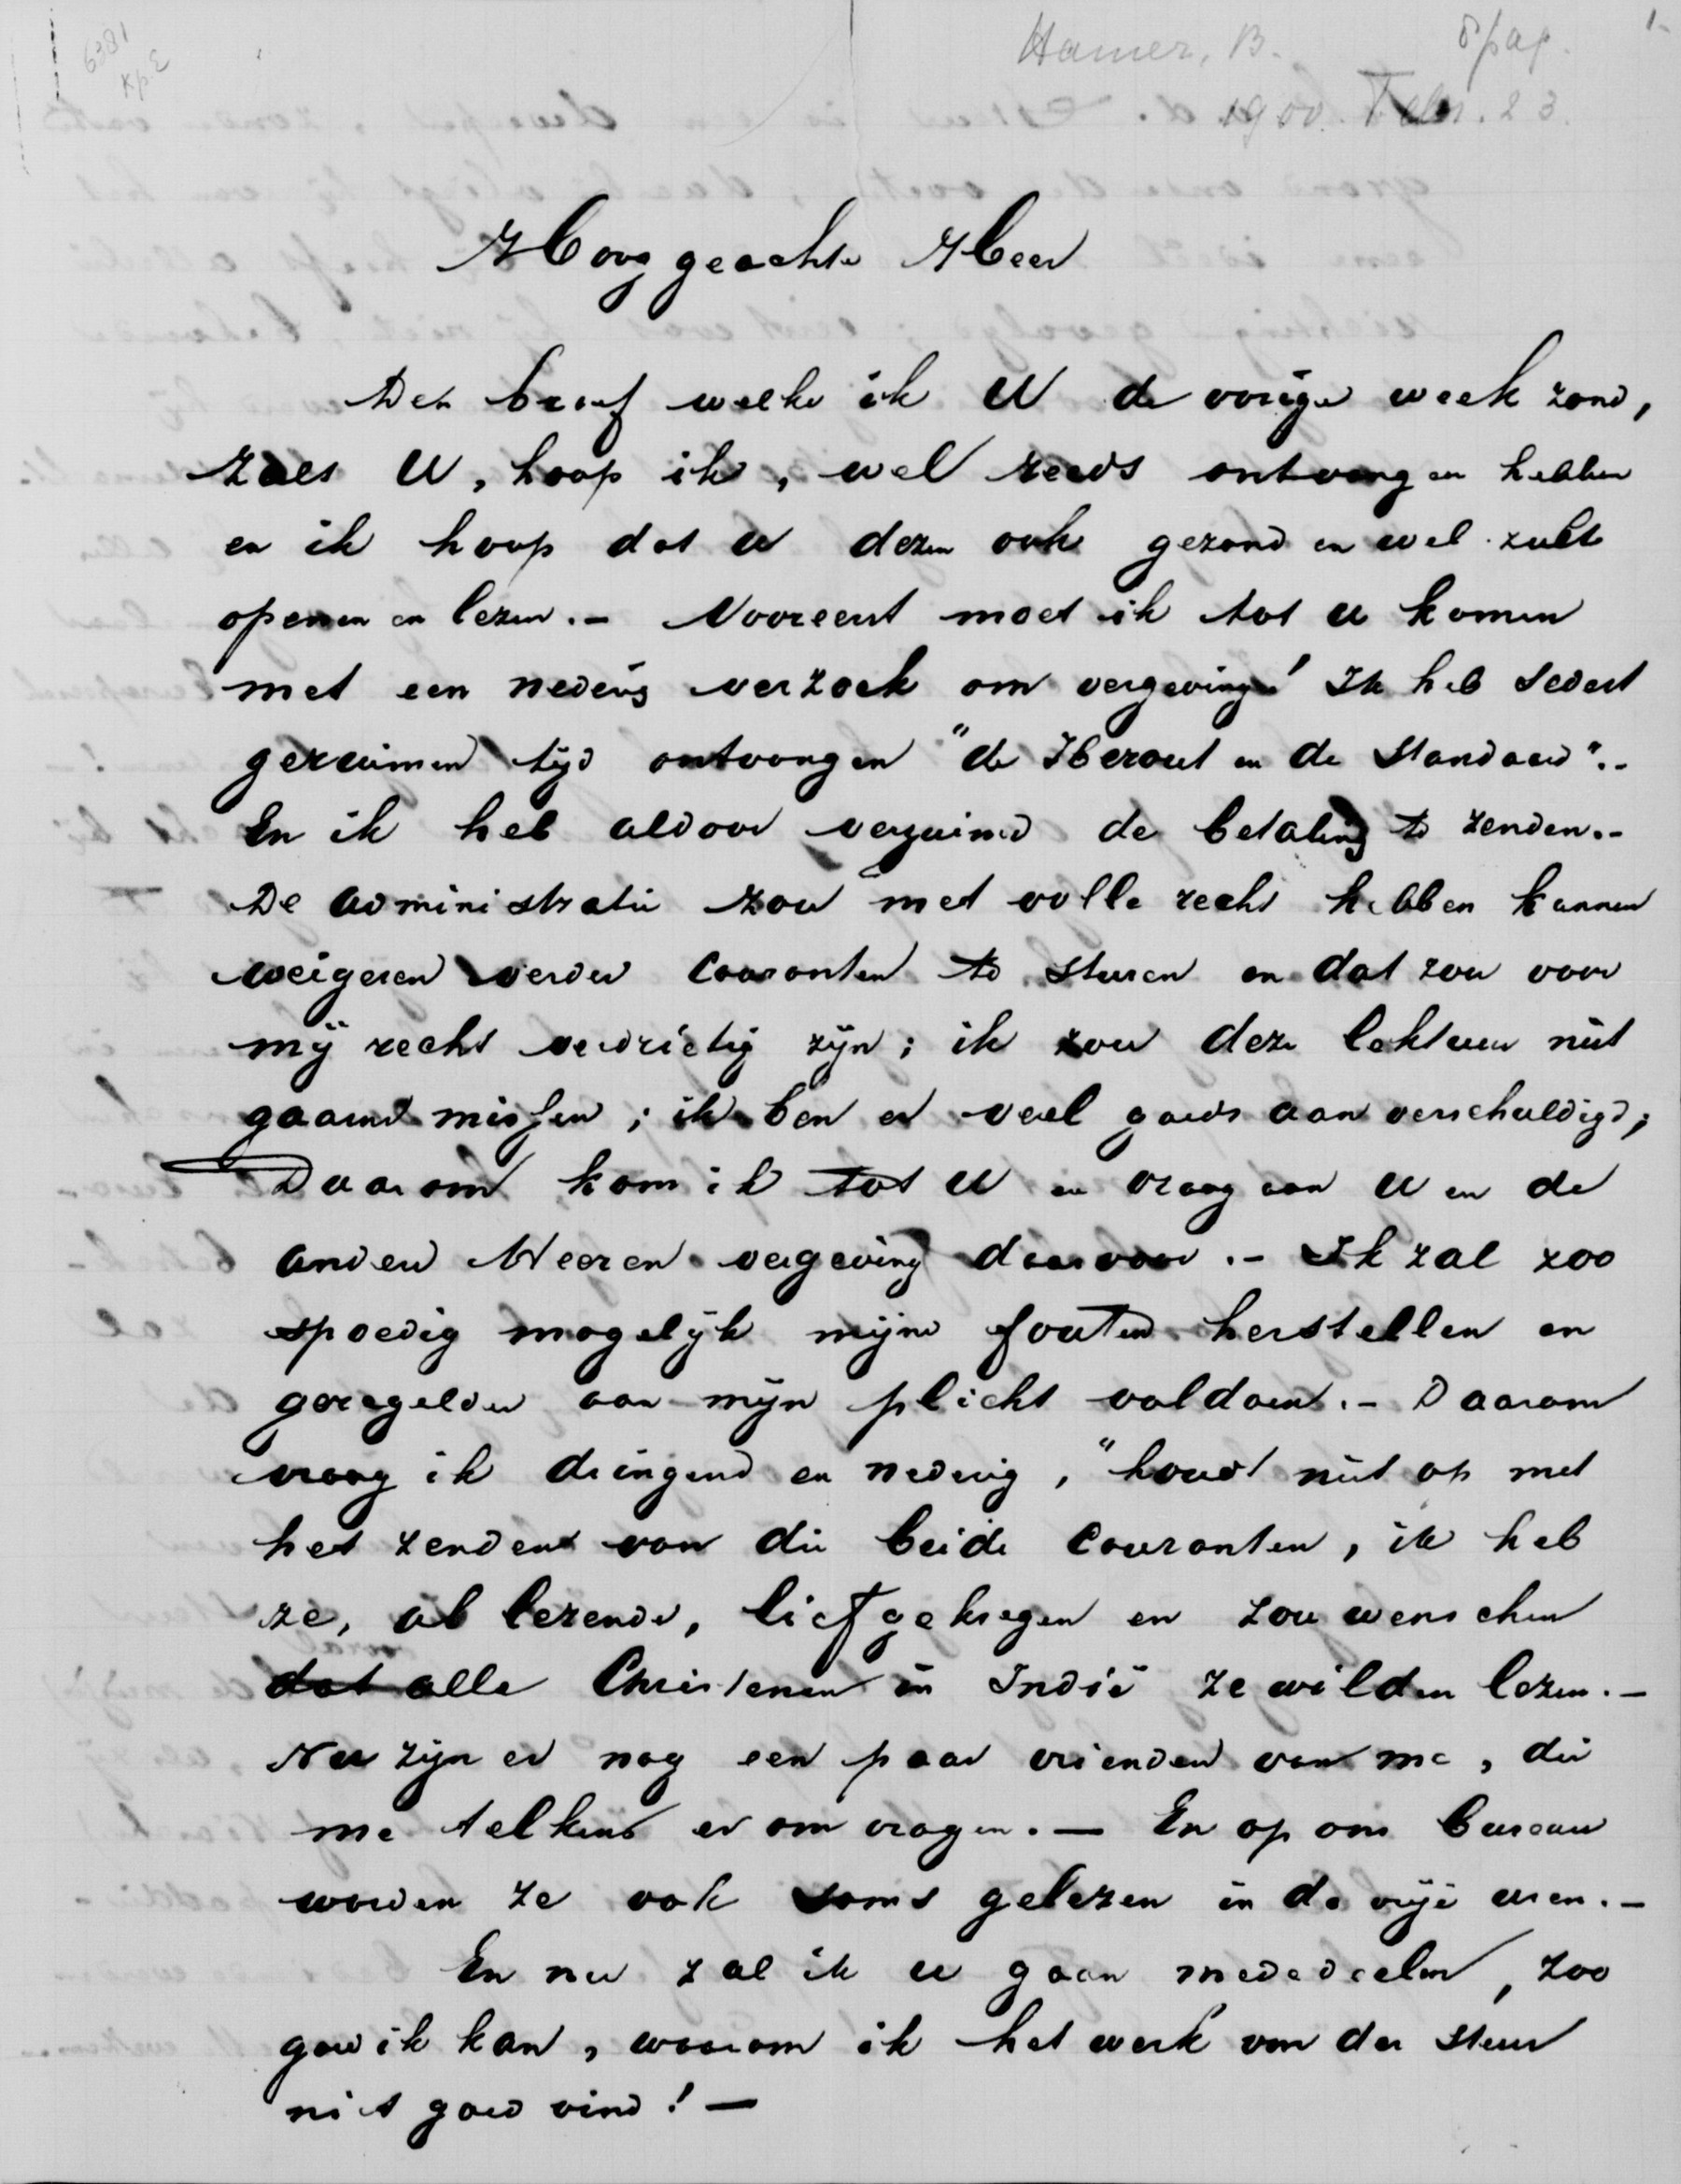 6381
kp 3
Hamer, B. 8 pag. 1-
1900. Febr. 23.
Hooggeachte Heer
Den brief welke ik U de vorige week zond,
zals U, hoop ik, wel reeds ontvangen hebben
en ik hoop dat u dezen ook gezond en wel zult
openen en lezen.- Vooreerst moet ik tot u komen
met een nederig verzoek om vergeving! Ik heb sedert
geruimen tijd ontvangen "de Heraut en de Standaard".-
En ik heb aldoor verzuimd de betaling te zenden.-
De administratie zou met volle recht hebben kunnen
weigeren verder Couranten te sturen en dat zou voor
mij recht verdrietig zijn; ik zou deze lektuur niet
gaarne missen; ik ben er veel goeds aan verschuldigd;
Daarom kom ik tot U en vraag aan U en de
andere Heeren vergeving daarvoor.- Ik zal zoo
spoedig mogelijk mijne fouten herstellen en
geregelder aan mijn plicht voldoen.- Daarom
vraag ik dringend en nederig, "houdt niet op met
het zenden van die beide Couranten, ik heb
ze, al lezende, lief gekregen en zou wenschen
dat alle Christenen in Indië ze wilden lezen.-
Nu zijn er nog een paar vrienden van me, die
me telkens er om vragen.- En op ons bureau
worden ze ook soms gelezen in de vrije uren.-
En nu zal ik u gaan mededeelen, zoo
goed ik kan, waarom ik het werk van der Steur
niet goed vind!-